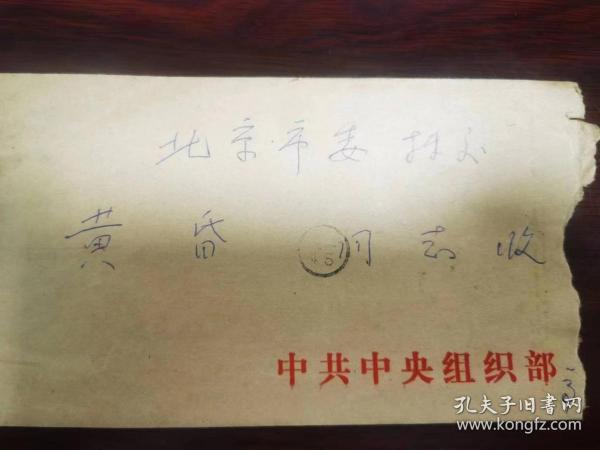 北京市委 转交
黄昏 同志 收
中共中央组织部
孔夫子旧书网
www.kongfz.com